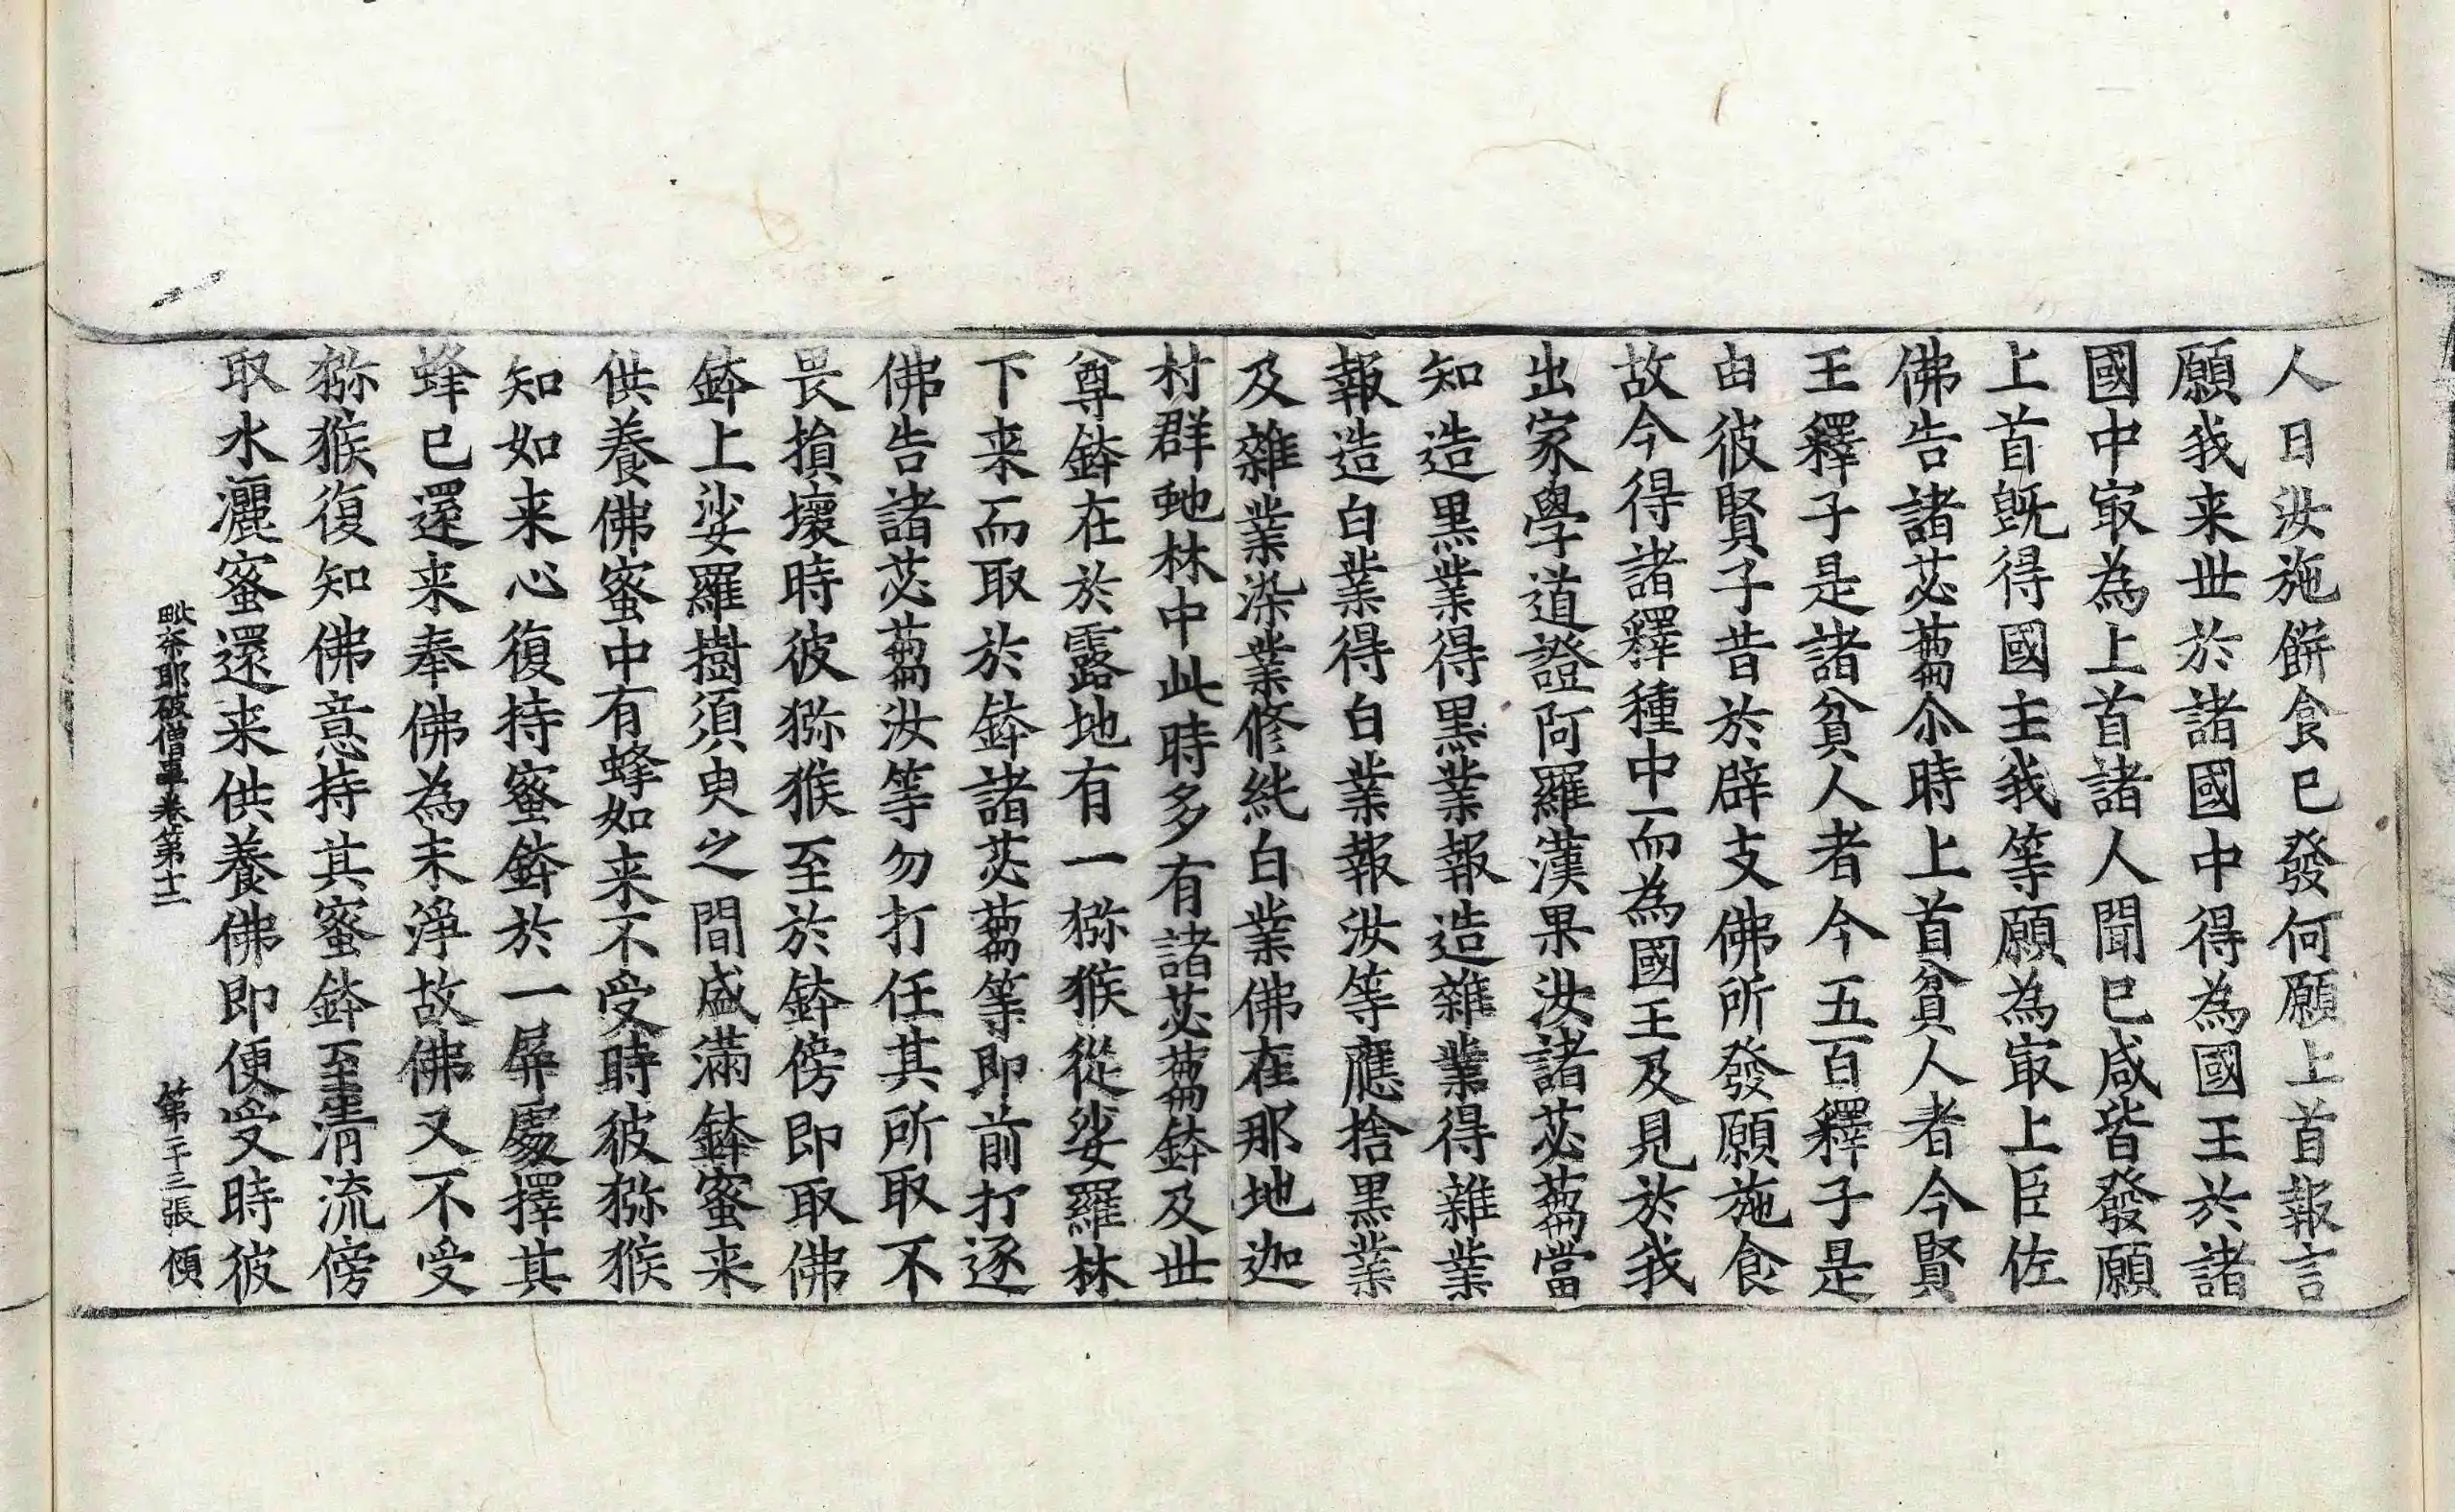 人曰汝施餅食已發何願上首報言
願我来世於諸國中得為國王於諸
國中冣為上首諸人聞已咸皆發願
上首旣得國主我等願為冣上臣佐
佛告諸苾蒭尒時上首貧人者今賢
王釋子是諸貧人者今五百釋子是
由彼賢子昔於辟支佛所發願施食
故今得諸釋種中而為國王及見於我
出家學道證阿羅漢果汝諸苾蒭當
知造黒業得黒業報造雜業得雜業
報造白業得白業報汝等應捨黒業
及雜業染業修純白業佛在那地迦
村群虵林中此時多有諸苾蒭鉢及世
尊鉢在於露地有一猕猴從娑羅林
下来而取於鉢諸苾蒭等即前打逐
佛告諸苾蒭汝等勿打任其所取不
畏損壞時彼猕猴至於鉢傍即取佛
鉢上娑羅樹須臾之間盛滿鉢蜜来
供養佛蜜中有蜂如来不受時彼猕猴
知如来心復持蜜鉢於一屏處擇其
蜂已還来奉佛為未淨故佛又不受
猕猴復知佛意持其蜜鉢至清流傍
取水灑蜜還来供養佛即便受時彼
毗奈耶破僧事卷第十二 第二十三張 傾